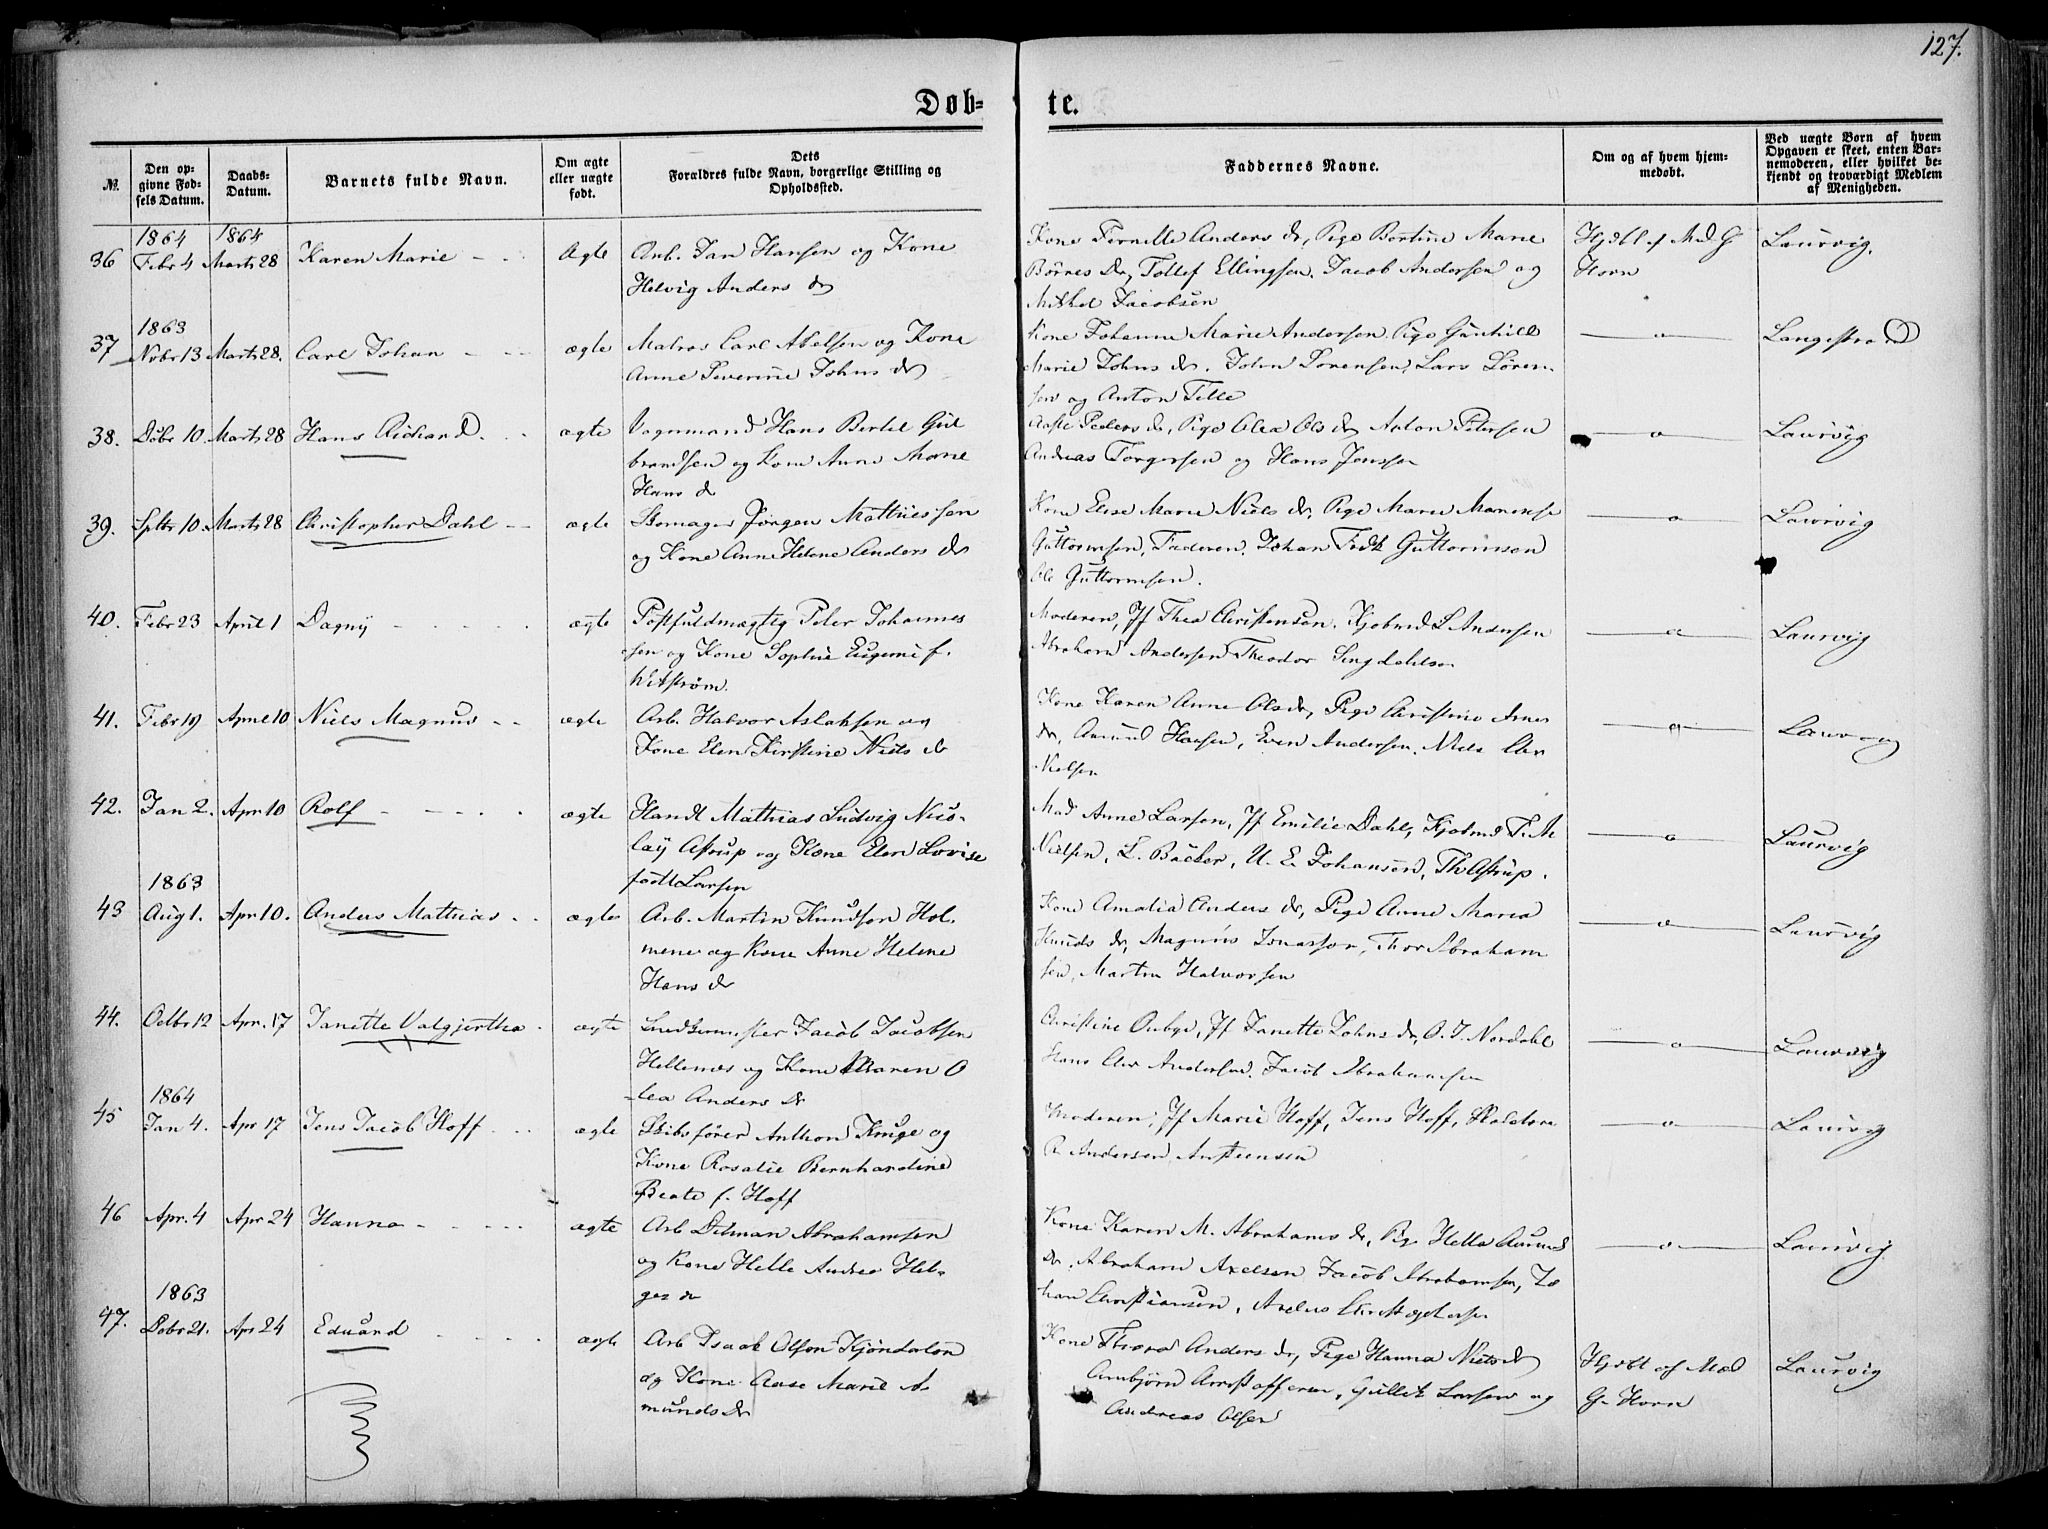 127.
Døb- te.
№.
Den opgivne Fødsels Datum.
Daabs-Datum.
Barnets fulde Navn.
Om ægte eller uægte født.
Dets Forældres fulde Navn, borgerlige Stilling og Opholdssted.
Faddernes Navne.
Om og af hvem hjemmedøbt.
Ved uægte Børn af hvem Opgaven er skeet, enten Barnemoderen, eller hvilket bekjendt og troværdigt Medlem af Menigheden.
1864 1864
36 Febr 4 Marts 28 Karen Marie - - Ægte Arb. Jan Hansen og Kone
Helvig Anders dr
Kone Pernille Anders dr, Pige Bertine Marie
Børres dr, Tollef Ellingsen. Jacob Andersen og
Mikkel Jacobsen
Hjdbt af Md G
Horn
Laurvig.
1863
37 Nobr 13 Marts 28. Carl Johan - - ægte Matros Carl Abelsen og Kone
Anne Severine Johns dr
Kone Johanne Marie Andersen. Pige Gunhild
Marie Johns dr. John Sørensen, Lars Søren-
sen og Anton
o
Langestrand
38. Dcbr 10 Marts 28 Hans Richard. - ægte Vognmand Hans Bertel Gul
brandsen og Kone Anne Marie
Hans dr
Peders dr, Pige Olea Ols dr Anton Petersen
Andreas Torgersen og Hans Jensen
o
Laurvig
39. Sptbr 10 Marts 28 Christopher Dahl - ægte Skomager Jørgen Mathiessen
og Kone Anne Helene Anders dr
Kone Elise Marie Niels dr, Pige Marie
Guttormsen, Faderen, Johan Fredk Guttormsen
Ole Guttormsen.
o
Laurvig
40. Febr 23 April 1 Dagny - - - ægte Postfuldmægtig Peter Johannes
sen og Kone Sophie Eugenie f.
Witstrøm.
Moderen, Jf Thea Christensen. Kjøbmd L Andersen
Abraham Andersen Theodor
o
Laurvig
41. Febr 19 April 10 Niels Magnus - - ægte Arb. Halvor Aslaksen og
Kone Elen Kirstine Niels dr
Kone Karen Anne Ols dr, Pige Christine
dr, Amund Hansen, Even Andersen. Niels Chr
Nielsen
o
Laurvig
42. Jan 2. Apr 10 Rolf - - - - ægte Handl Mathias Ludvig Nico-
lay Astrup og Kone Elen Lovise
født Larsen
Mad Anne Larsen, Jf Emilie Dahl, Kjøbmd F. M
Nielsen, L. Bäcker, U. E. Johansen, Th Astrup.
o
Laurvig
1863
43 Aug 1. Apr 10. Anders Mathias - - ægte Arb. Martin Knudsen Hol-
mene og Kone Anne Helene
Hans dr
Kone Amalia Anders dr, Pige Anne Maria
Knuds dr, Magnus Jonassen, Thor Abraham
sen, Martin Halvorsen
o
Laurvig
44. Octbr 12 Apr. 17 Janette Valgjertha - ægte Snedkermester Jacob Jacobsen
Hellenæs og Kone Maren O
lea Anders dr
Christine Aubye, Jf Janette Johns dr, O. J. Nordahl
Hans Chr Andersen. Jacob Abrahamsen
o
Laurvig
1864
45 Jan 4. Apr 17 Jens Jacob Hoff - - - ægte Skibsfører Anthon Kruge og
Kone Rosalie Bernhardine
Beate f. Hoff
Moderen, Jf Marie Hoff, Jens Hoff,
Andersen Anstensen
o
Laurvig
46 Apr. 4 Apr 24 Hanna - - - - - ægte Arb Ditman Abrahamsen
og Kone Helle Andrea Hel-
ges dr
Kone Karen M. Abrahams dr, Pige Helle Amunds
dr. Abraham Axelsen Jacob Abrahamsen, Jo
han Christiansen, Axelius
o
Laurvig
1863
47. Dcbr 21. Apr 24 Eduard - - - - ægte Arb Isaak Olsen Kjøndalen
og Kone Aase Marie A-
munds dr
Kone Thora Anders dr, Pige Hanna Niels dr
Arnbjørn, Gullik Larsen og
Andreas Olsen
Hjdbt af Mad
G. Horn
Laurvig